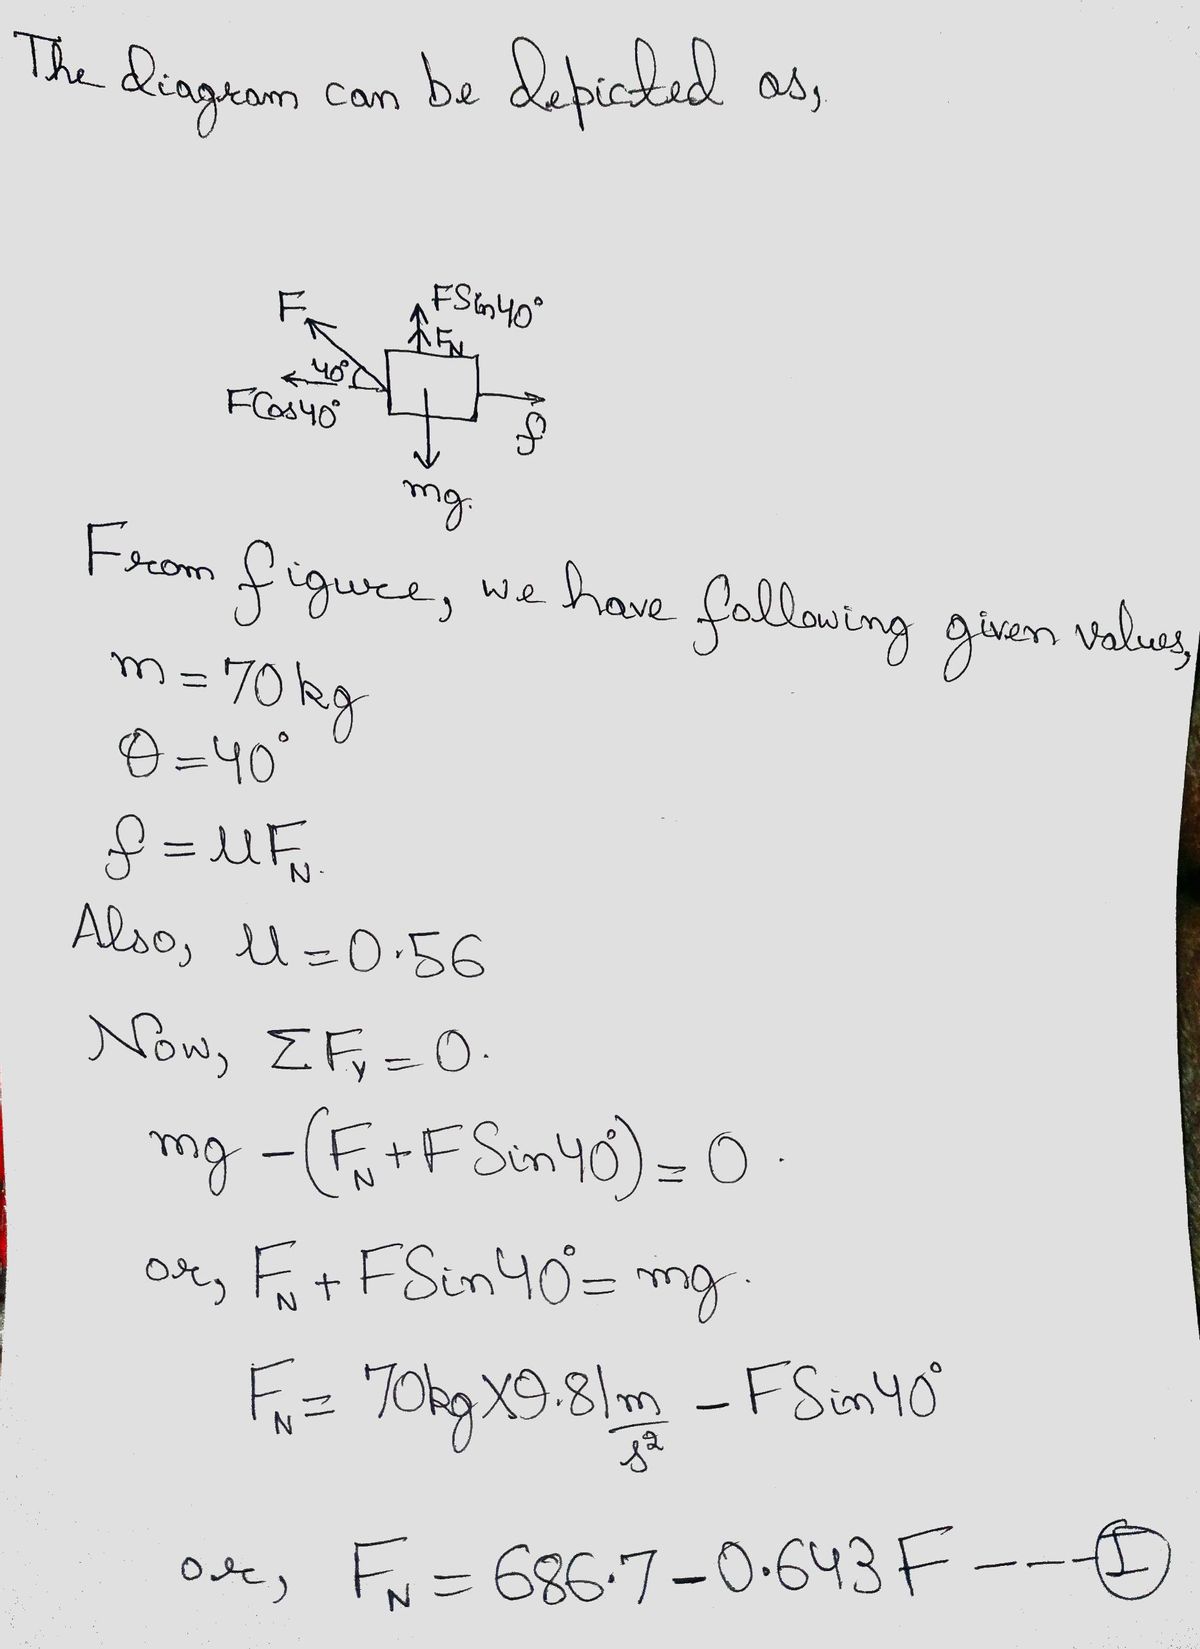 The diagram can be depicted as,
F
FSin40°
F_N
40°
FCos40°
f
mg.
From figure, we have following given values,
m = 70 kg
θ = 40°
f = μF_N.
Also, μ = 0.56
Now, ΣF_y = 0.
mg - (F_N + F Sin40°) = 0.
or, F_N + FSin40° = mg.
F_N = 70kg X 9.81 m/s² - FSin40°
or, F_N = 686.7 - 0.643 F ---(I)